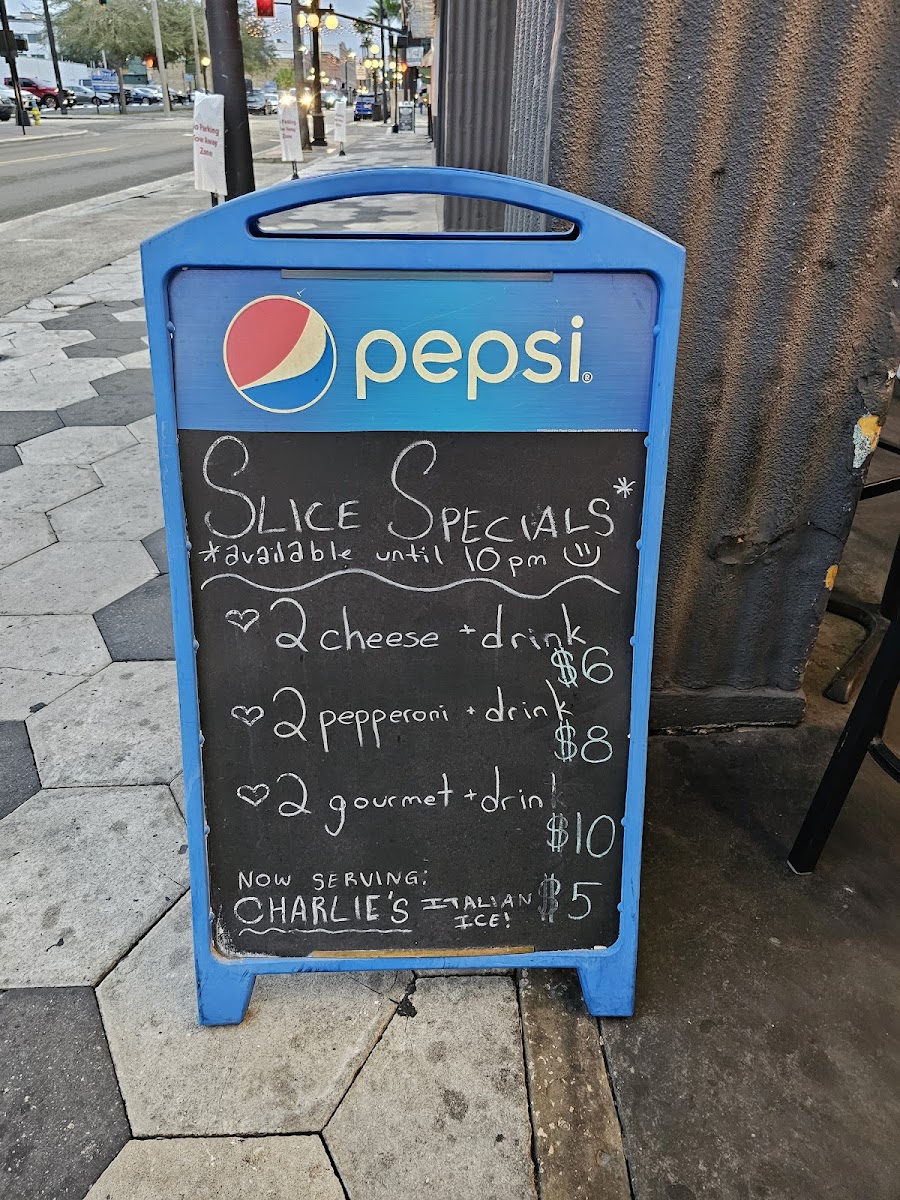 No Parking
Tow Away
Zone
pepsi®
SLICE SPECIALS*
*available until 10pm
♡ 2 cheese + drink
$6
♡ 2 pepperoni + drink
$8
♡ 2 gourmet + drink
$10
NOW SERVING:
CHARLIE'S ITALIAN ICE! $5